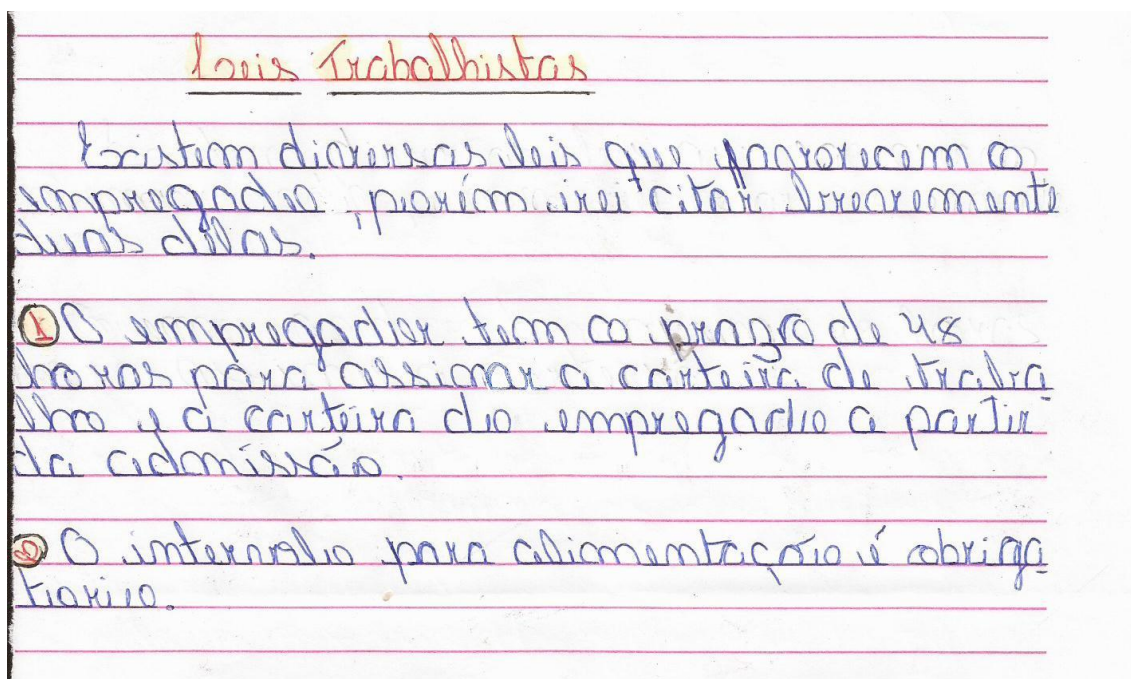 Leis Trabalhistas
Existem diversas leis que favorecem o
empregado, porém irei citar brevemente
duas delas.
1 O empregador tem o prazo de 48
horas para assinar a carteira de traba
lho e a carteira do empregado a partir
da admissão.
2 O intervalo para alimentação é obriga
tório.